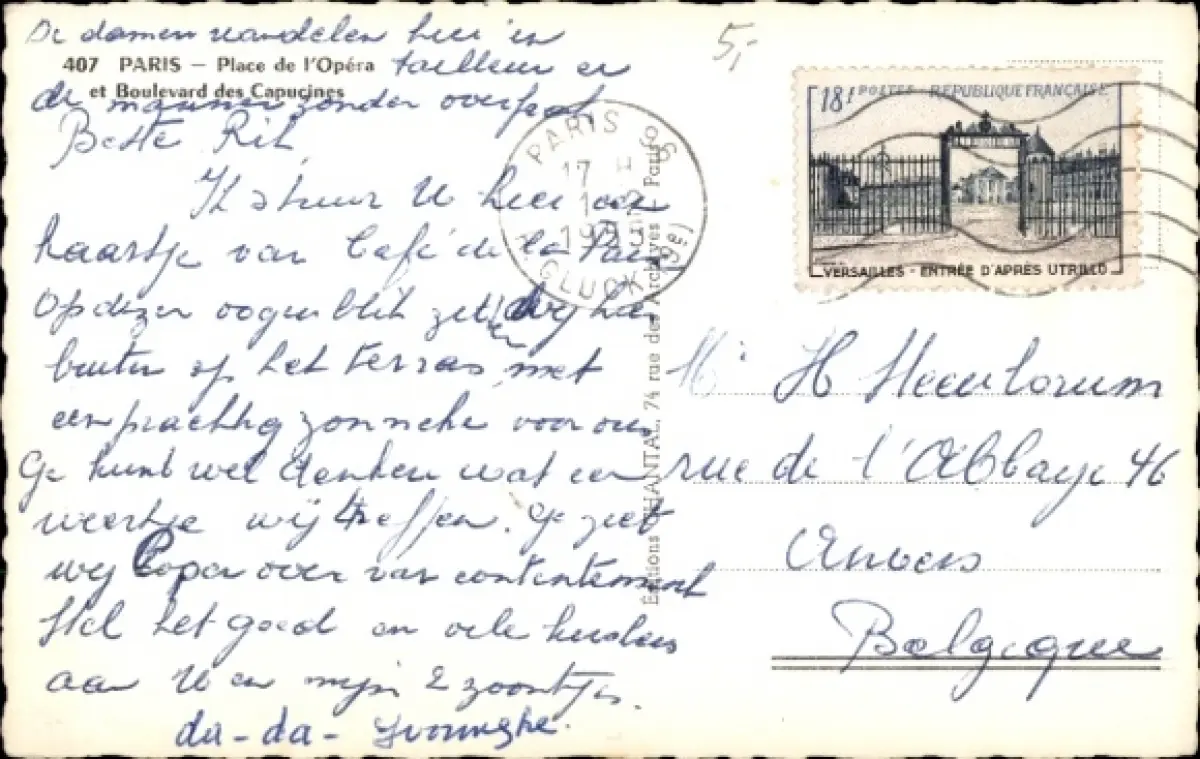 De damen wandelen hier in
407 PARIS — Place de l'Opéra
tailleur en
et Boulevard des Capucines
de mannen zonder overjas
Beste Rik,
Ik stuur U hier een
kaartje van Café de la Paix
Op dezen oogenblik zet
buiten op het terras, met
een prachtig zonneke voor ons
Ge kunt wel denken wat een
weertje wij treffen. Ge ziet
wij lopen over van contentement
Stel het goed en vele kussen
aan U en mijn 2 zoontjes.
da-da-
5,-
PARIS 96
17 H
1955
GLUCK
Éditions CHANTAL, 74 rue des Archives, Paris
18f POSTES - RÉPUBLIQUE FRANÇAISE
VERSAILLES - ENTRÉE D'APRÈS UTRILLO
Mr H
rue de l'Abbaye 46
Anvers
Belgique